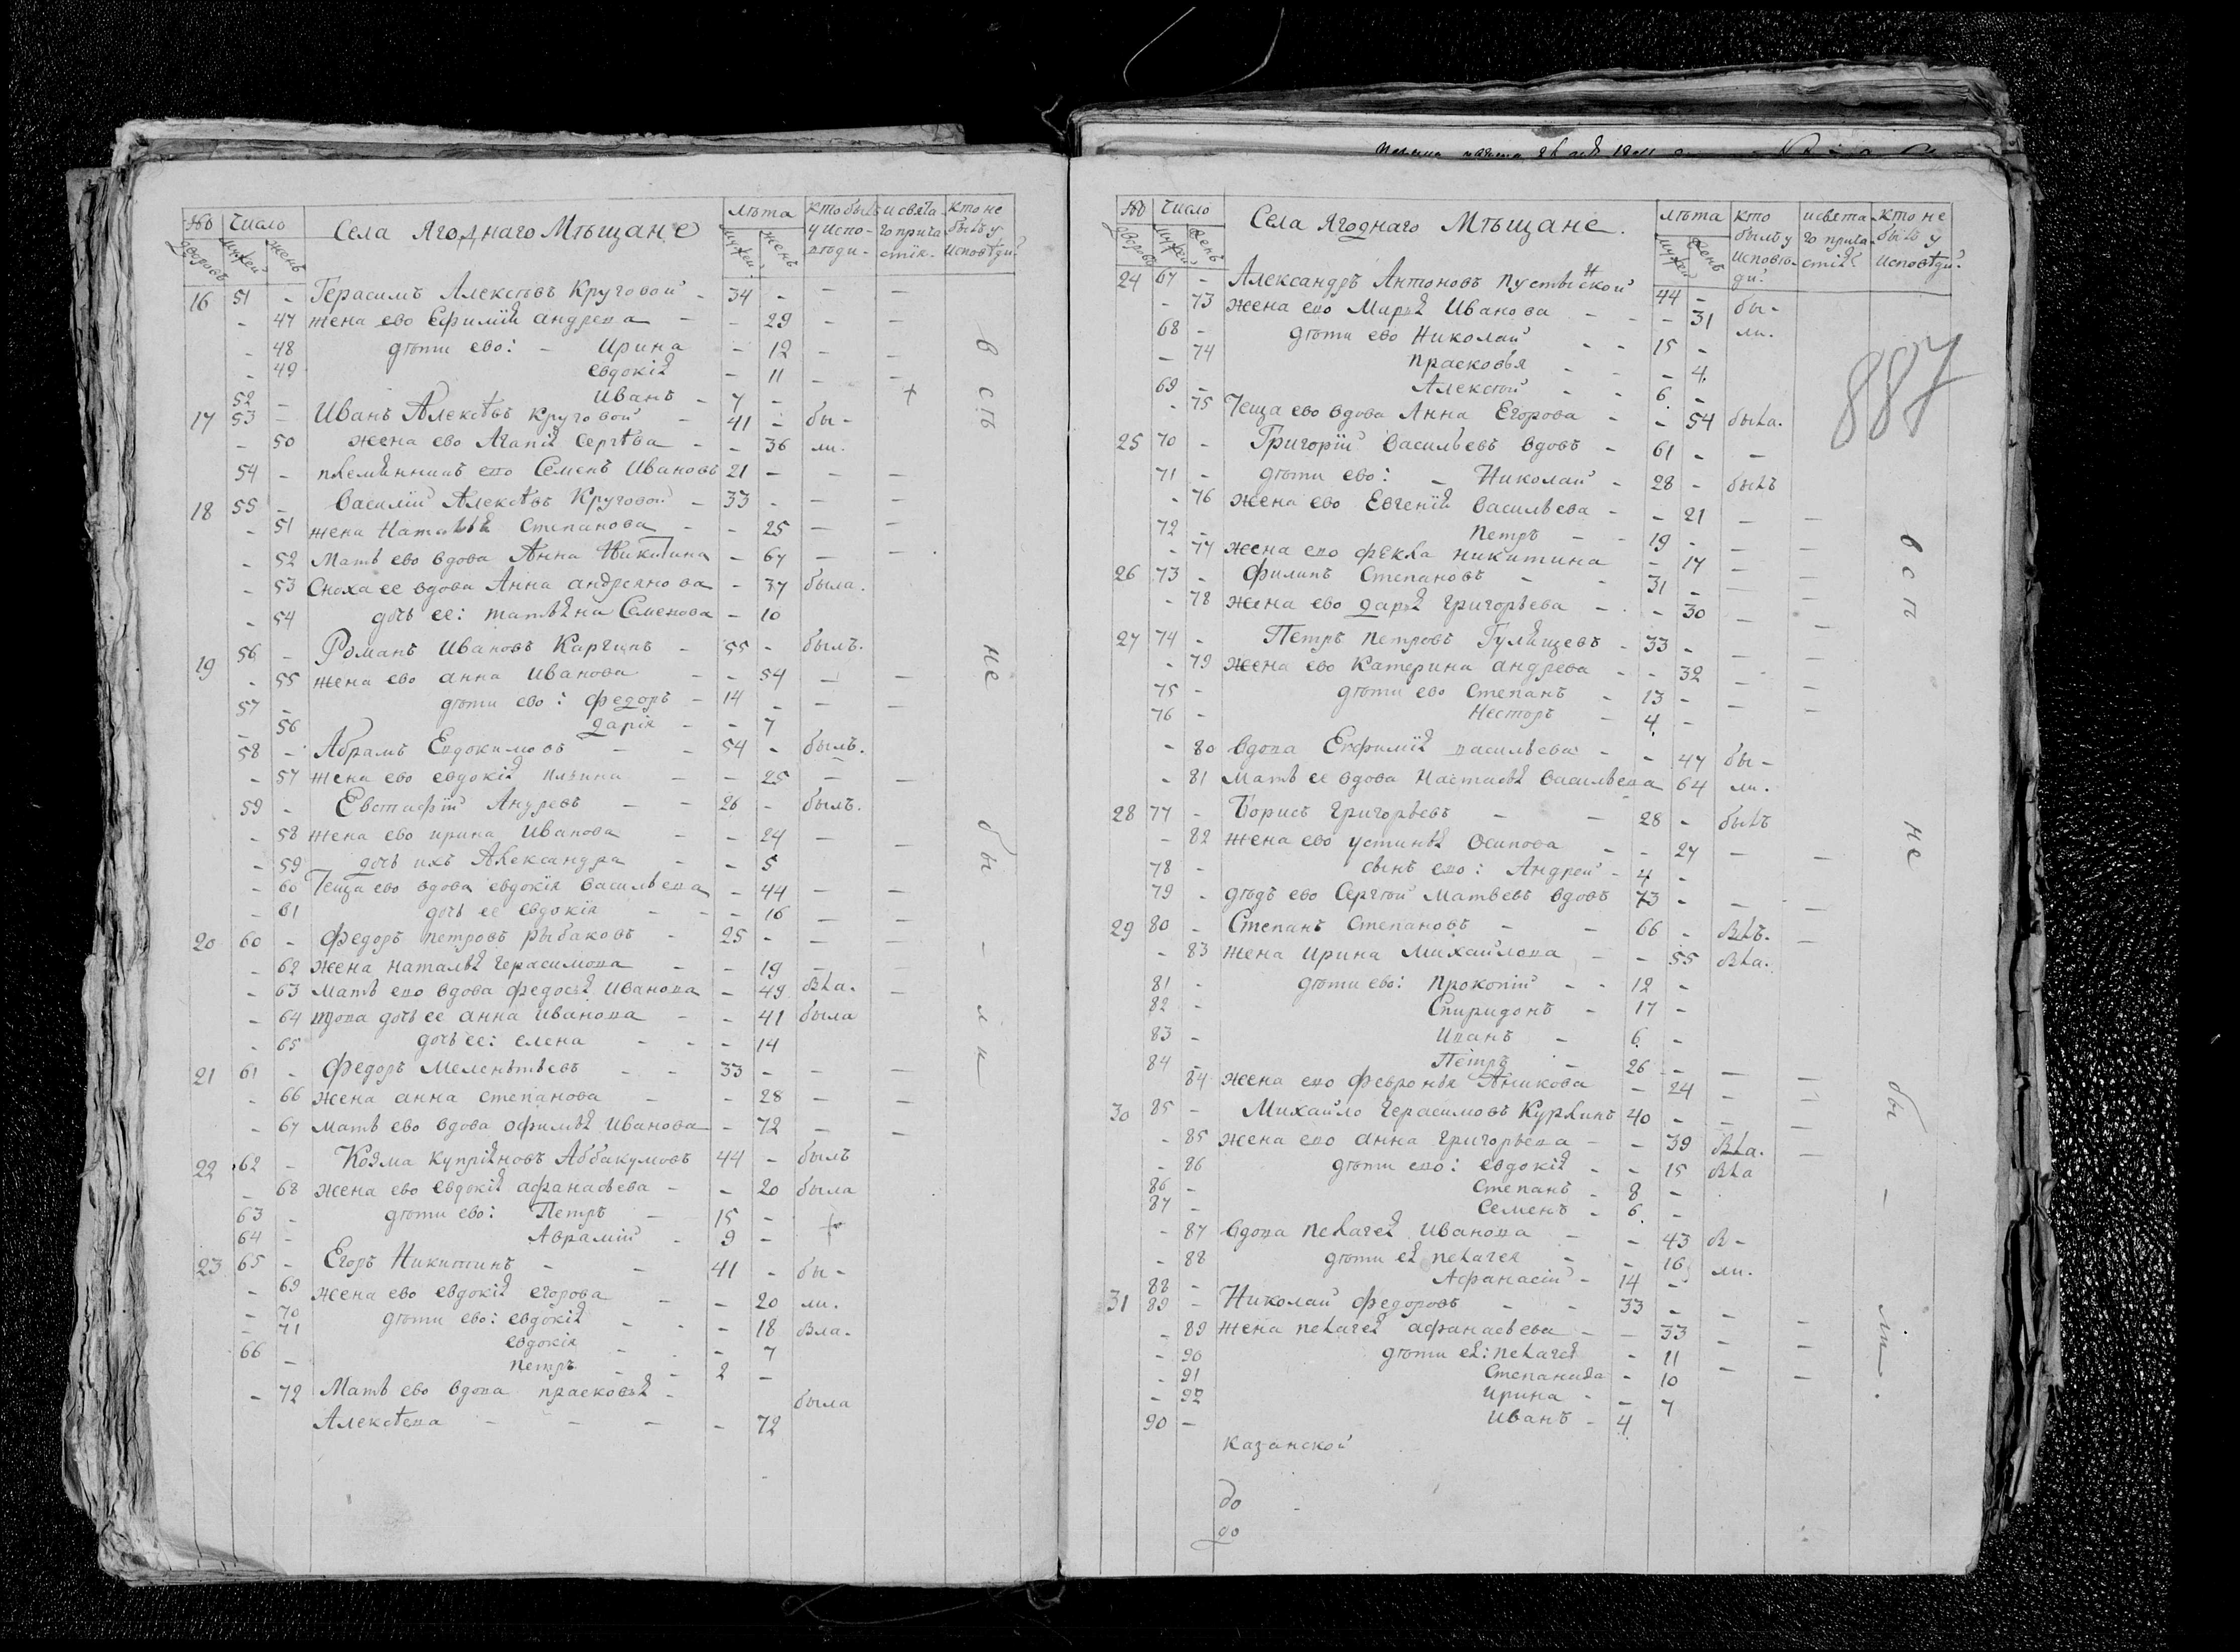 № Число Села Ягоднаго Мѣщане лѣта кто былъ у исповѣди и свята го прича стія кто не былъ у исповѣди
дворовъ мужей женъ мужей женъ
16 51 - Герасимъ Алексѣвъ Круговой - 34 - - -
- 47 жена ево Ефимія андрева - - 29 - -
- 48 дѣти ево: - Ирина - 12 - -
- 49 евдокія - 11 - -
52 - Иванъ - 7 - +
17 53 - Иванъ Алексѣвъ круговой - 41 - бы-
- 50 жена ево Агапія Сергѣва - - 36 ли.
54 - племянникъ ево Семенъ Ивановъ 21 - - -
18 55 - Василій Алексѣвъ Круговой - 33 - - -
- 51 жена Наталья Степанова - - 25 - -
- 52 Мать ево вдова Анна Никитина - 67 - -
- 53 Сноха ее вдова Анна андреянова - 37 была.
- 54 дочь ее: татьяна Семенова - 10
19 56 - Романъ Ивановъ Каргинъ - 55 - былъ.
- 55 жена ево анна Иванова - - 54 - -
57 - дѣти ево: федоръ - 14 - - -
- 56 дарія - - 7
58 - Абрамъ Евдокимовъ - - 54 - былъ.
- 57 жена ево евдокія - - 25 - -
59 - Евстафій Андревъ - - 26 - былъ.
- 58 жена ево ирина Иванова - - 24 - -
- 59 дочь ихъ Александра - - 5
- 60 Теща ево вдова евдокія васильева - 44 - -
- 61 дочь ее евдокія - - - 16 - -
20 60 - федоръ петровъ рыбаковъ - 25 - - -
- 62 жена наталья герасимова - - 19 - -
- 63 Мать ево вдова федосья Иванова - 49 вла. -
- 64 вдова дочь ее анна иванова - - 41 была
- 65 дочь ее: елена - - - 14
21 61 - федоръ Мелентьевъ - - 33 - - -
- 66 жена анна степанова - - 28 - -
- 67 мать ево вдова офимья Иванова - 72 - -
22 62 - Козма купріяновъ Аббакумовъ 44 - былъ
- 68 жена ево евдокія афанасьева - - 20 была
63 - дѣти ево: Петръ - 15 - +
64 - Аврамій - 9 -
23 65 - Егоръ Никитинъ - - 41 - бы-
- 69 жена ево евдокія егорова - - 20 ли.
- 70 дѣти ево: евдокія - - - 18 вла.
- 71 евдокія - - 7
66 - петръ - - 2 -
- 72 Мать ево вдова прасковья - была
Алексѣева - - - - 72
всѣ не бы - ли
№ Число Села Ягоднаго Мѣщане. лѣта кто былъ у исповѣди и свята го прича стія кто не былъ у исповѣди
дворовъ мужей женъ мужей женъ
887
24 67 - Александръ Антоновъ Пустынской 44 - бы-
- 73 жена ево Марья Иванова - - - 31 ли.
68 - дѣти ево Николай - - 15 -
- 74 прасковья - - - 4.
69 - Алексѣй - - 6. -
- 75 Теща ево вдова Анна Егорова - - 54 была.
25 70 - Григорій васильевъ вдовъ - 61 - -
71 - дѣти ево: - Николай - 28 - былъ
- 76 жена ево Евгенія васильева - - 21 - -
72 - петръ - - 19 - - -
- 77 жена ево фекла никитина - 17 - -
26 73 - филипъ Степановъ - - 31 - - -
- 78 жена ево дарья григорьева - - 30 - -
27 74 - Петръ петровъ Гулящевъ - 33 - - -
- 79 жена ево катерина андрева - - 32 - -
75 - дѣти ево Степанъ - 13 - - -
76 - Несторъ - 4. -
- 80 вдова Евфимія васильева - - 47 бы-
- 81 Мать ее вдова Настасья васильева 64 ли.
28 77 - Борисъ григорьевъ - - 28 - былъ
- 82 жена ево устинья Осипова - - 27 - -
78 - сынъ ево: Андрей - 4 -
79 - дѣдъ ево Сергѣй Матвевъ вдовъ 73 - - -
29 80 - Степанъ Степановъ - - 66 - влъ. -
- 83 жена ирина Михайлова - - 55 вла.
81 - дѣти ево: прокопій - - 12 -
82 - Спиридонъ - 17 -
83 - Иванъ - 6. -
84 - Петръ - 26 - - -
84 жена ево февронья Аникова - 24 - -
30 85 - Михайло герасимовъ Курлинъ 40 - - -
- 85 жена ево анна григорьева - - 39 вла. -
- 86 дѣти ево: евдокія - - 15 вла
86 - степанъ - 8 -
87 - семенъ - 6. -
- 87 вдова пелагея Иванова - - 43 в-
- 88 дѣти ея пелагея - - 16 ли.
88 - Афанасій - 14 -
31 89 - Николай федоровъ - - 33 - - -
- 89 жена пелагея афанасьева - - 33 - -
- 90 дѣти ея: пелагея - 11 - -
- 91 степанида - 10
- 92 ирина - - 7
90 - иванъ - 4.
казанской
до -
до
всѣ не бы - ли.